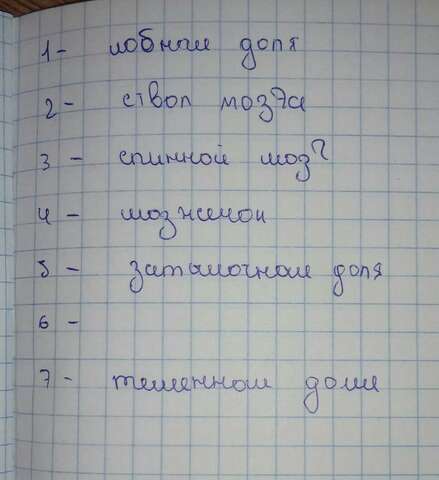 1- лобная доля
2- ствол мозга
3- спинной мозг
4- мозжечок
5- затылочная доля
6-
7- теменная доля